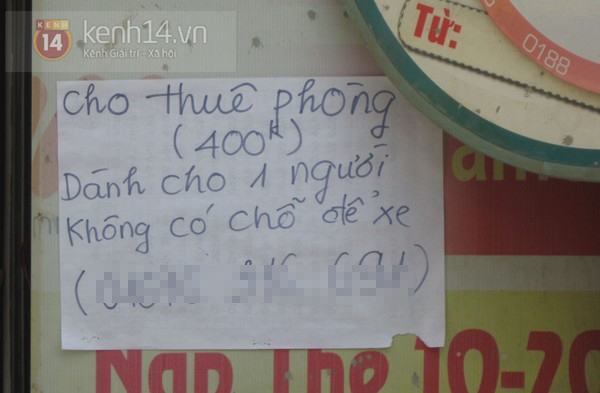 KENH
14
kenh14.vn
Kênh Giải trí - Xã hội
Từ:
0188
cho thuê phòng
(400k)
Dành cho 1 người
Không có chỗ để xe
Nạp Thẻ 10-20